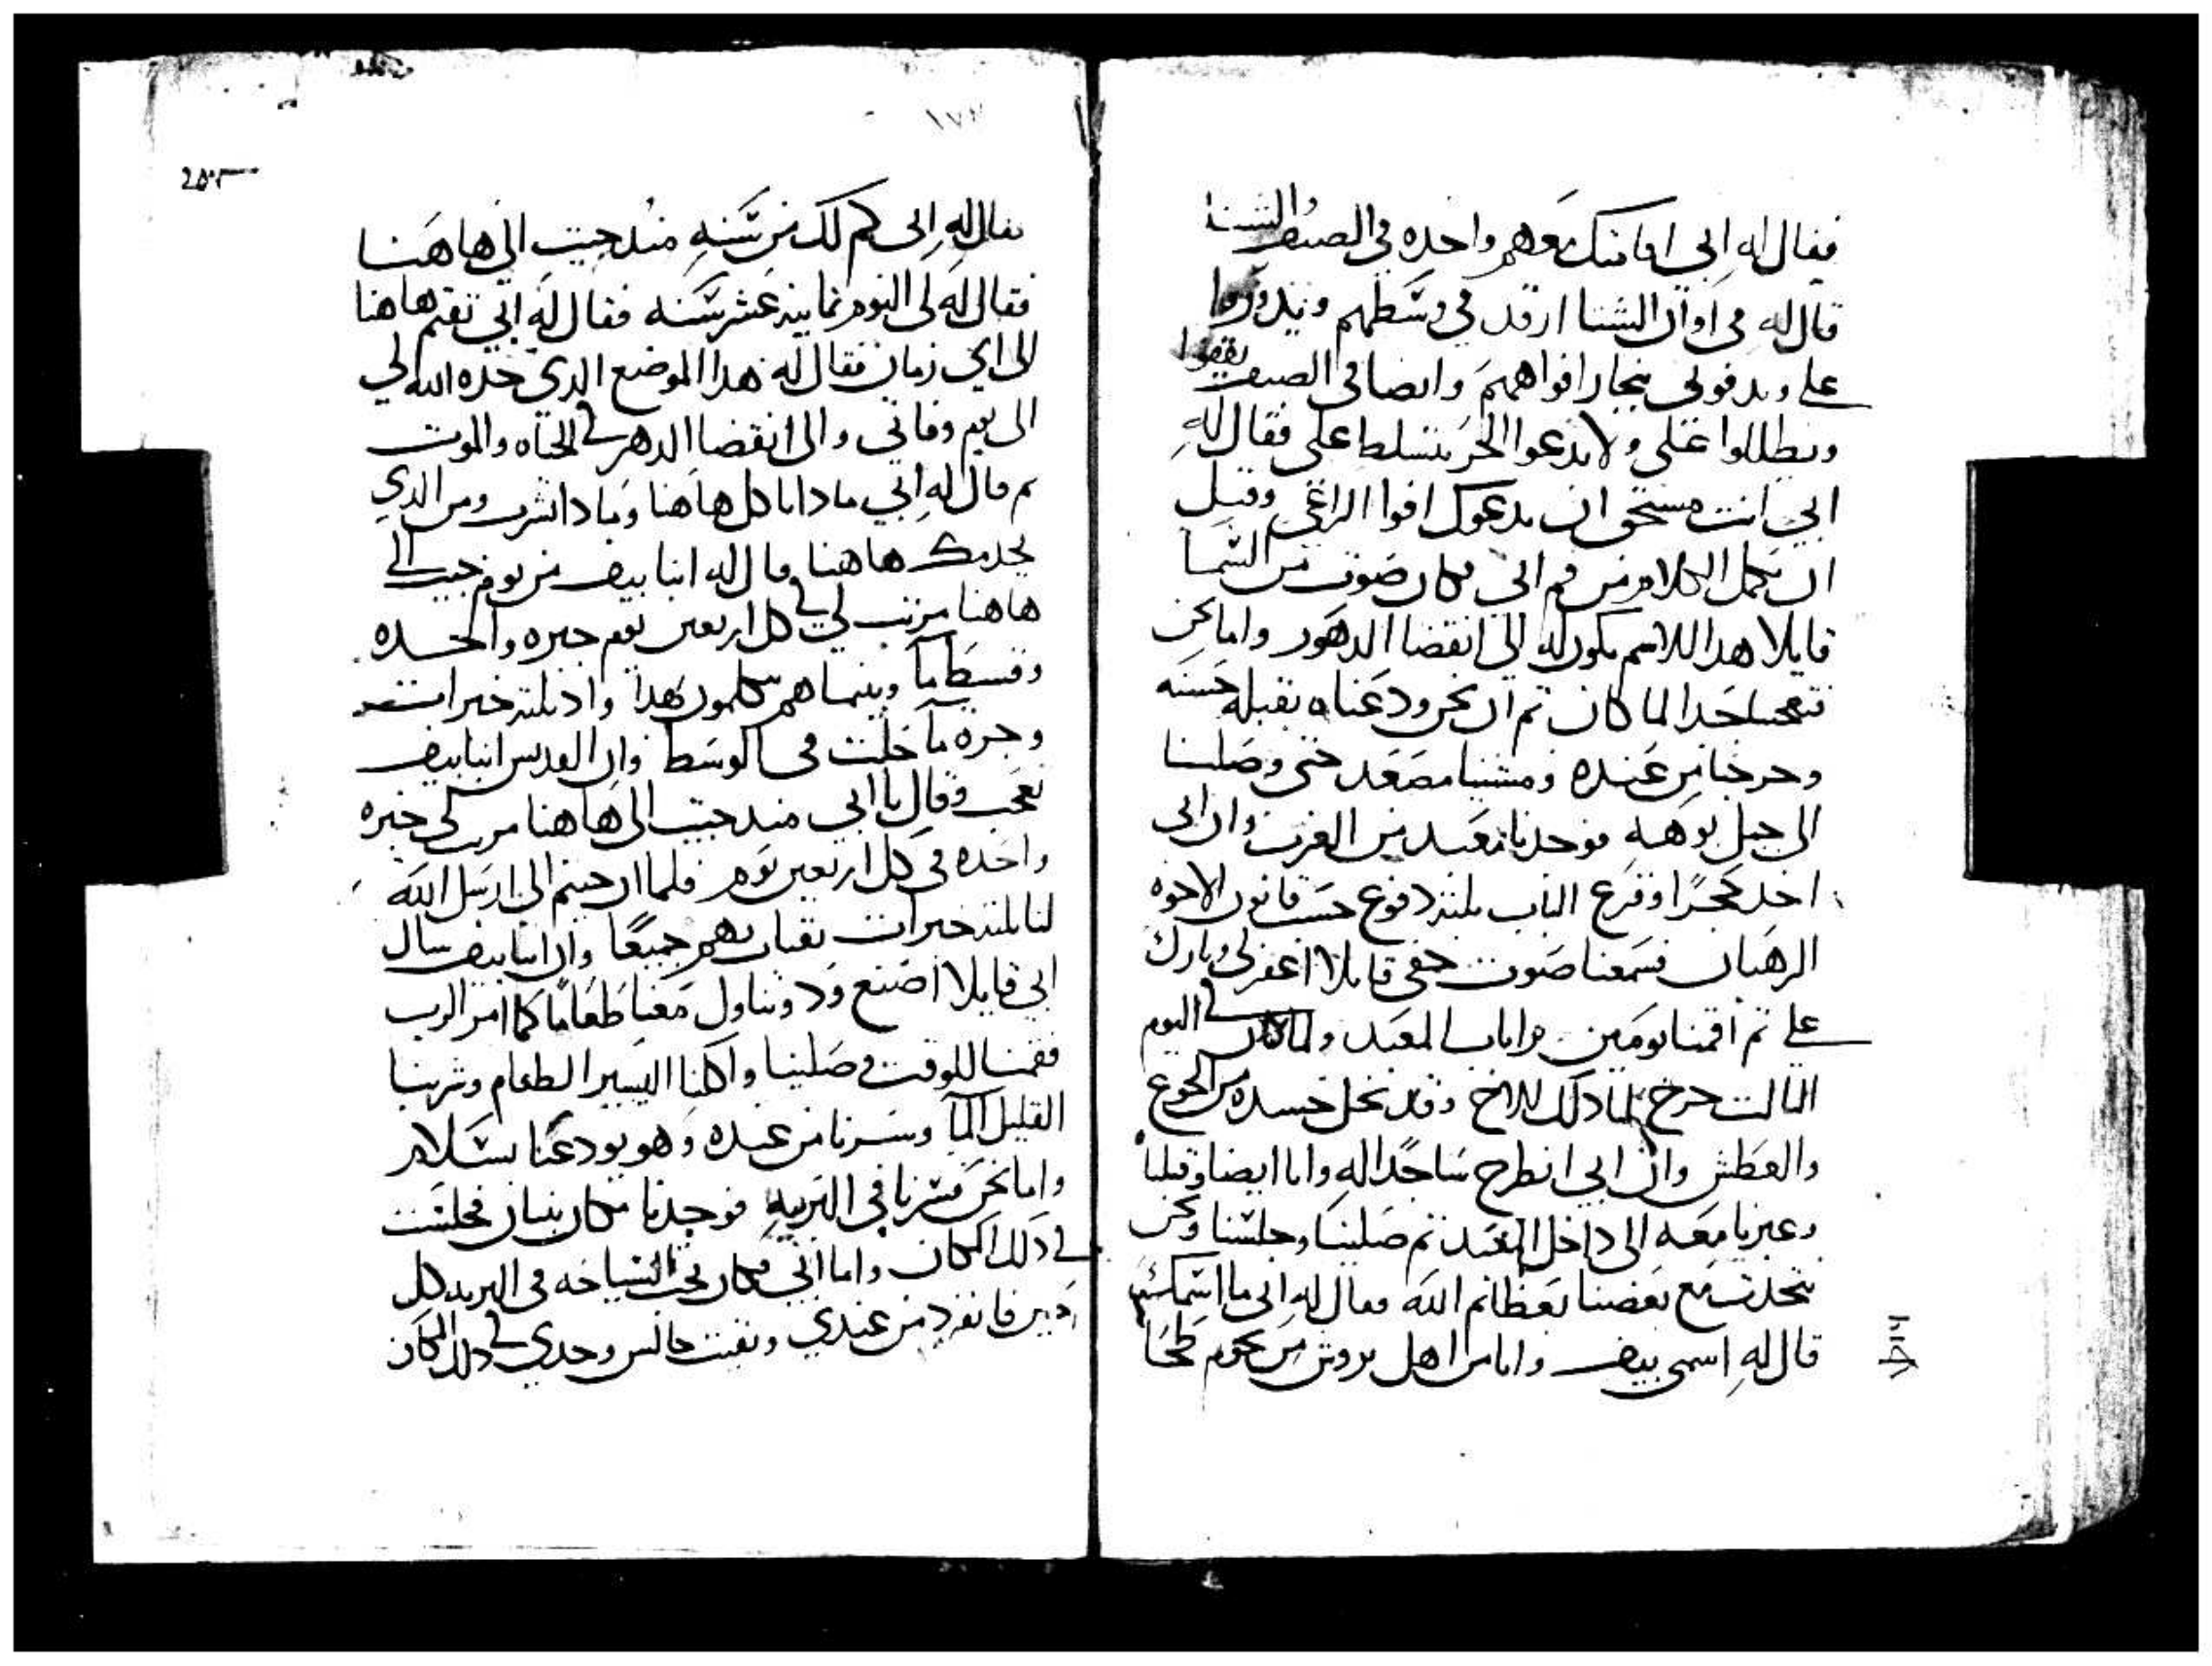 فقال له ابي اقامتك معهم واحده في الصيف والشتا
قال له في اوان الشتا ارقد في وسطهم ويدوروا
علي ويدفوني ببخار افواههم وايضا في الصيف يقفوا
ويظللوا علي ولا يدعوا الحر يتسلط علي فقال له
ابي انت مستحق ان يدعوك افوا الراعي وقبل
ان يكمل الكلام من فم ابي فكان صوت من السما
قايلا هدا اللاسم يكون له الي انقضا الدهور واما نحن
فتعجبنا جدا لما كان ثم ان نحن ودعناه بقبله حسنه
وخرجنا من عنده ومشينا مصعد حتى وصلنا
الى جبل بوهه فوجدنا معبد من الغرب وان ابى
اخد حجرا وقرع الباب بلته دفوع حسب قانون الاخوه
الرهبان فسمعنا صوت خفي قايلا اغفر لي وبارك
علي ثم اقمنا يومين على باب المعبد ولما كان في اليوم
التالت خرج لنا دلك الاخ وقد نحل جسده من الجوع
والعطش وان ابي انطرح ساجدا له وانا ايضا وقبلنا
وعبرنا معه الى داخل المعبد ثم صلينا وجلسنا ونحن
نتحدث مع بعضنا بعظايم الله فقال له ابى ما اسمك
قال له اسمي بيف وانا من اهل بروش من تخوم طحا
فقال له ابى كم لك من سنه مند جيت الى ها هنا
فقال له لى اليوم تمانيه عشر سنه فقال له ابي تقيم هاهنا
الى اي زمان فقال له هدا الموضع الدي حده الله لي
الى يوم وفاتي والى انقضا الدهر في الحياه والموت
ثم قال له ابي مادا تاكل هاهنا ومادا تشرب ومن الدي
يخدمك هاهنا قال له انبا بيف من يوم جيت الي
هاهنا مرتب لي في كل اربعين يوم خبزه واحده
وقسط ما وبينما هم يتكلمون بهدا وادا بتلته خبزات
وجرة ما حلت في الوسط وان القديس انبا بيف
تعجب وقال يا ابي مند جيت الى هاهنا مرتب لى خبزه
واحده في كل اربعين يوم فلما ان جيتم الي ارسل الله
لنا تلته خبزات نقتات بهم جميعا وان انبا بيف سال
ابي قايلا اصنع ود وتناول معنا طعاما كما امر الرب
فقمنا للوقت وصلينا واكلنا اليسير الطعام وشربنا
القليل الما وسرنا من عنده وهو يودعنا بسلام
واما نحن فسرنا في البريه فوجدنا مكان بنيان فجلست
في دلك المكان واما ابي فكان يحب السياحه في البريه كل
حين فانفرد من عندي وبقيت جالس وحدي في دلك المكان